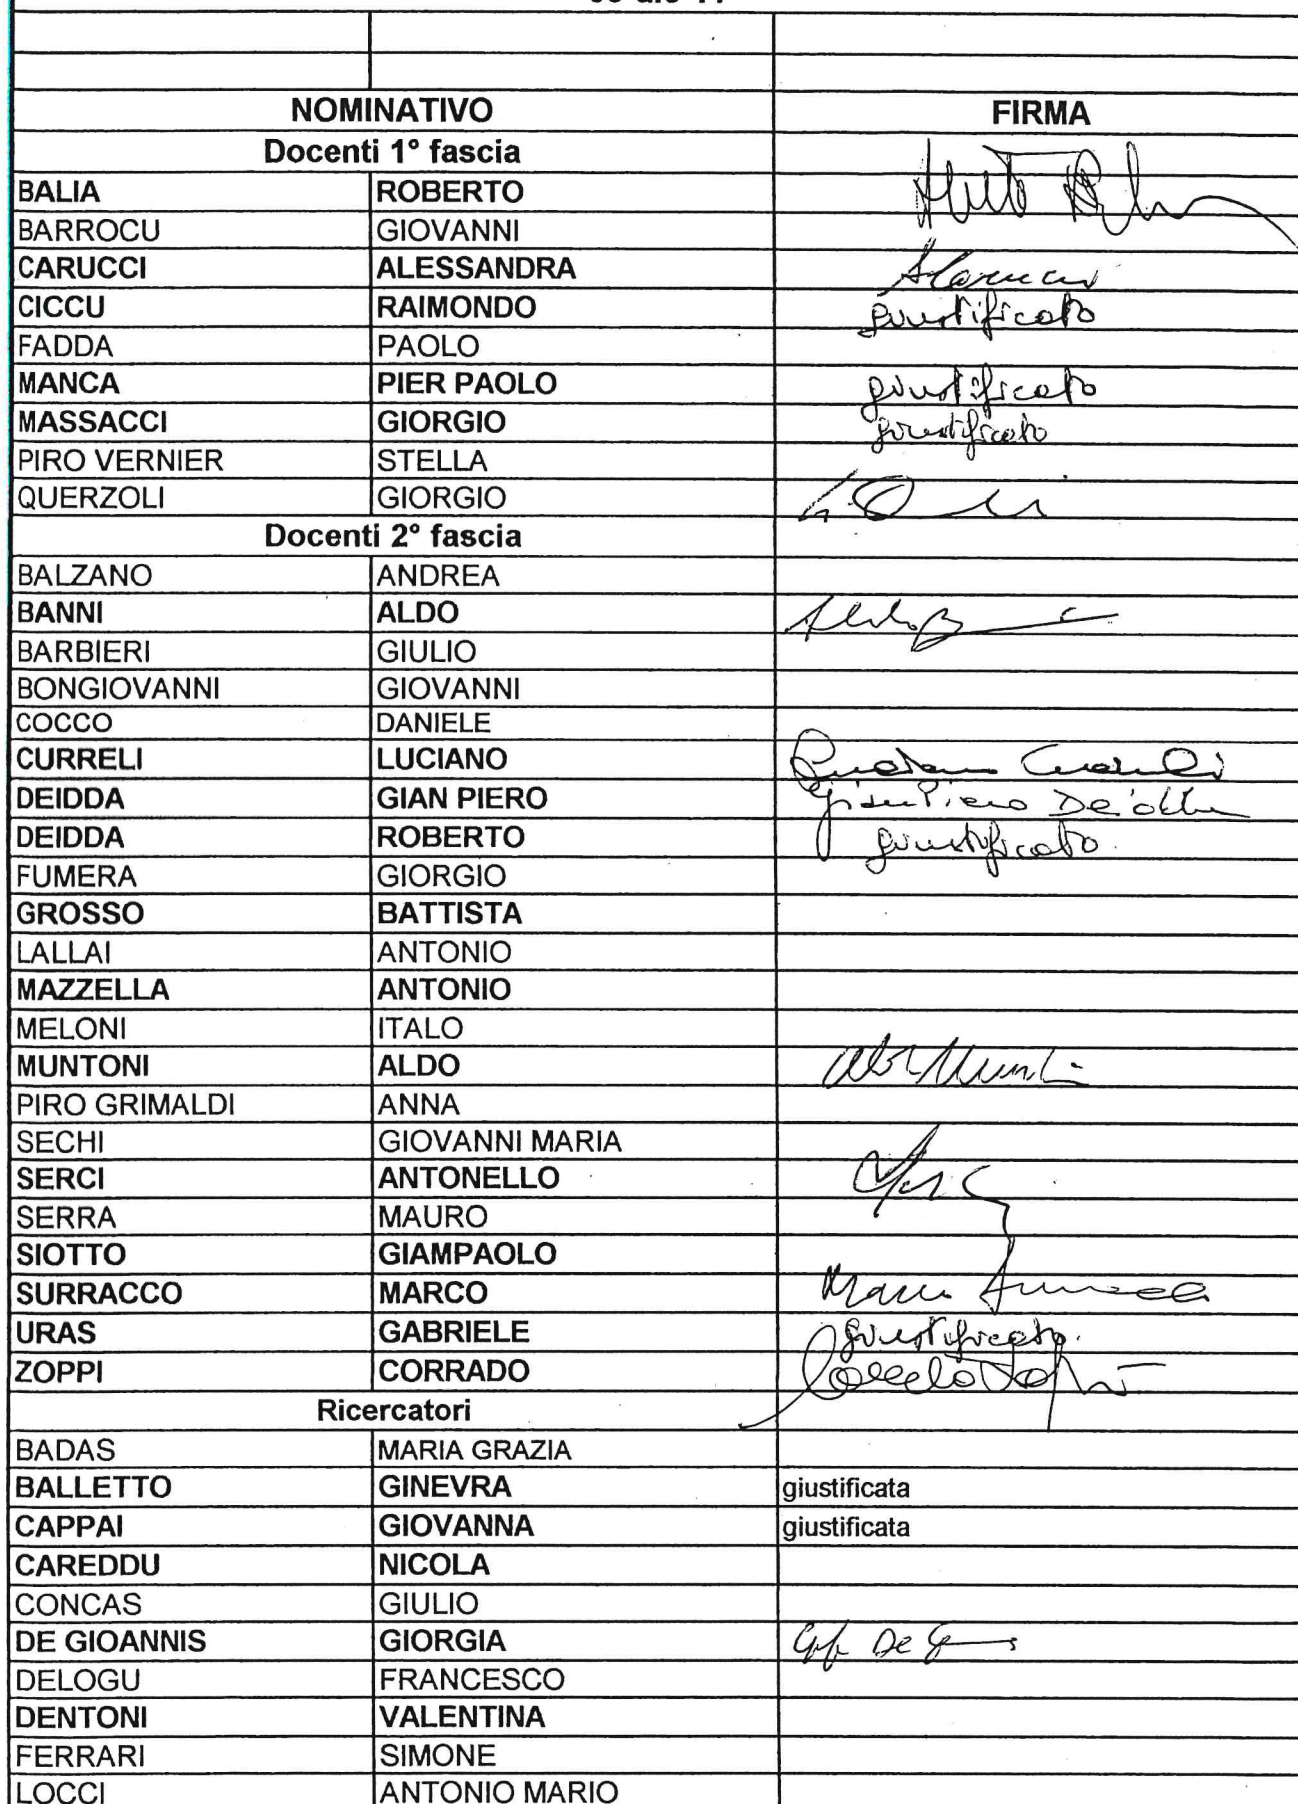 NOMINATIVO FIRMA
Docenti 1° fascia
BALIA ROBERTO
BARROCU GIOVANNI
CARUCCI ALESSANDRA ACarucci
CICCU RAIMONDO giustificato
FADDA PAOLO
MANCA PIER PAOLO giustificato
MASSACCI GIORGIO giustificato
PIRO VERNIER STELLA
QUERZOLI GIORGIO
Docenti 2° fascia
BALZANO ANDREA
BANNI ALDO
BARBIERI GIULIO
BONGIOVANNI GIOVANNI
COCCO DANIELE
CURRELI LUCIANO Luciano Curreli
DEIDDA GIAN PIERO Gian Piero Deidda
DEIDDA ROBERTO giustificato
FUMERA GIORGIO
GROSSO BATTISTA
LALLAI ANTONIO
MAZZELLA ANTONIO
MELONI ITALO
MUNTONI ALDO
PIRO GRIMALDI ANNA
SECHI GIOVANNI MARIA
SERCI ANTONELLO
SERRA MAURO
SIOTTO GIAMPAOLO
SURRACCO MARCO Marco Surracco
URAS GABRIELE giustificato.
ZOPPI CORRADO Corrado Zoppi
Ricercatori
BADAS MARIA GRAZIA
BALLETTO GINEVRA giustificata
CAPPAI GIOVANNA giustificata
CAREDDU NICOLA
CONCAS GIULIO
DE GIOANNIS GIORGIA
DELOGU FRANCESCO
DENTONI VALENTINA
FERRARI SIMONE
LOCCI ANTONIO MARIO